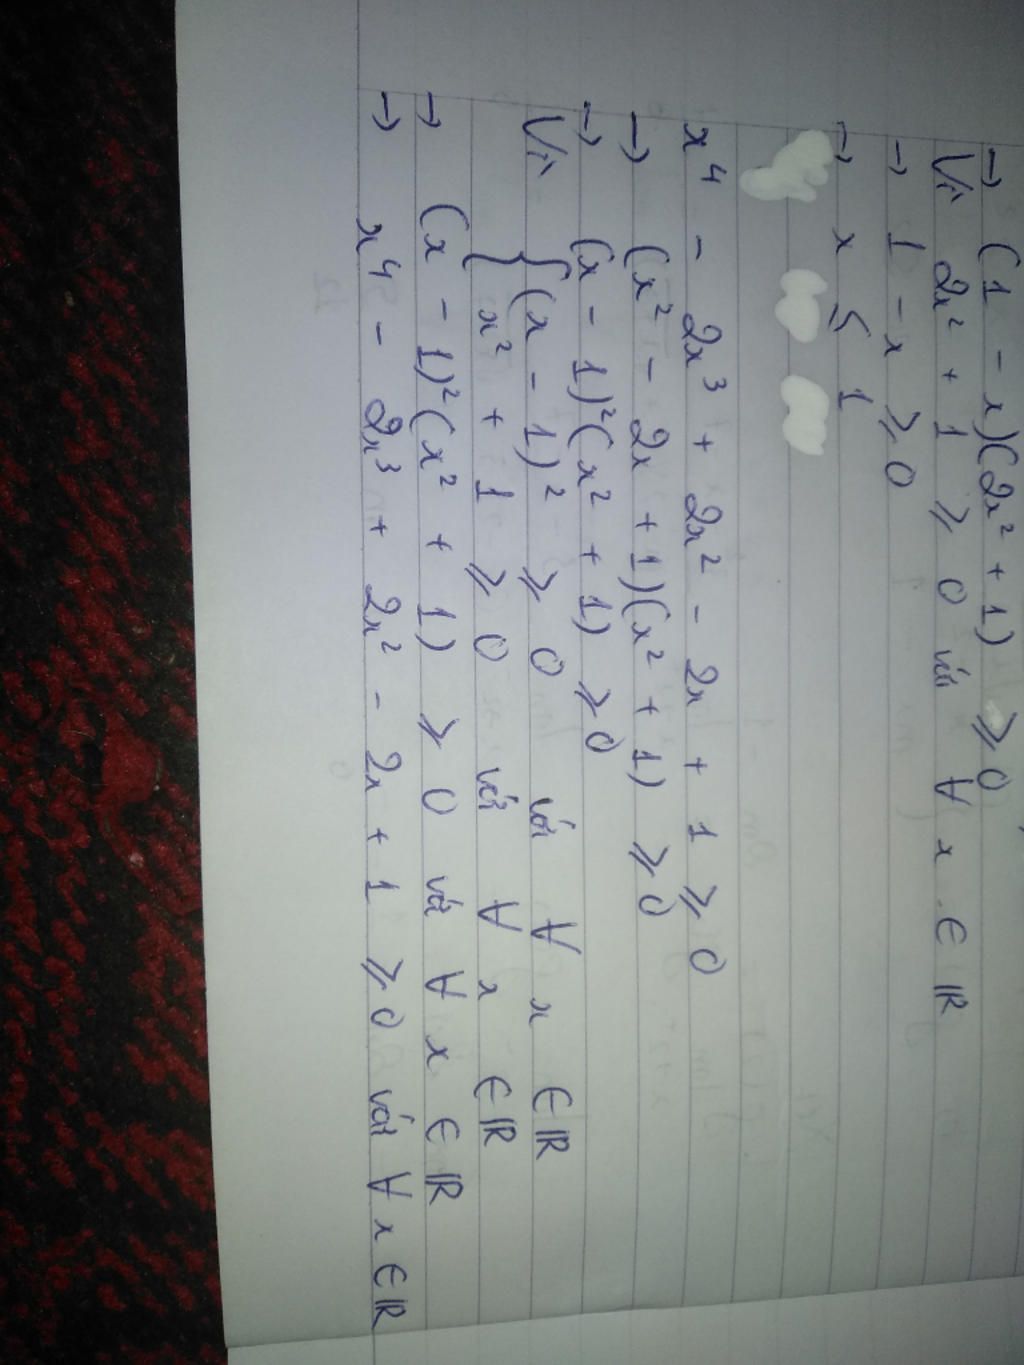 → (1 - x)(2x² + 1) ≥ 0
Vì 2x² + 1 ≥ 0 với ∀ x ∈ ℝ
→ 1 - x ≥ 0
→ x ≤ 1
x⁴ - 2x³ + 2x² - 2x + 1 ≥ 0
→ (x² - 2x + 1)(x² + 1) ≥ 0
→ (x - 1)²(x² + 1) ≥ 0
Vì { (x - 1)² ≥ 0 với ∀ x ∈ ℝ
x² + 1 ≥ 0 với ∀ x ∈ ℝ
→ (x - 1)²(x² + 1) ≥ 0 với ∀ x ∈ ℝ
→ x⁴ - 2x³ + 2x² - 2x + 1 ≥ 0 với ∀ x ∈ ℝ